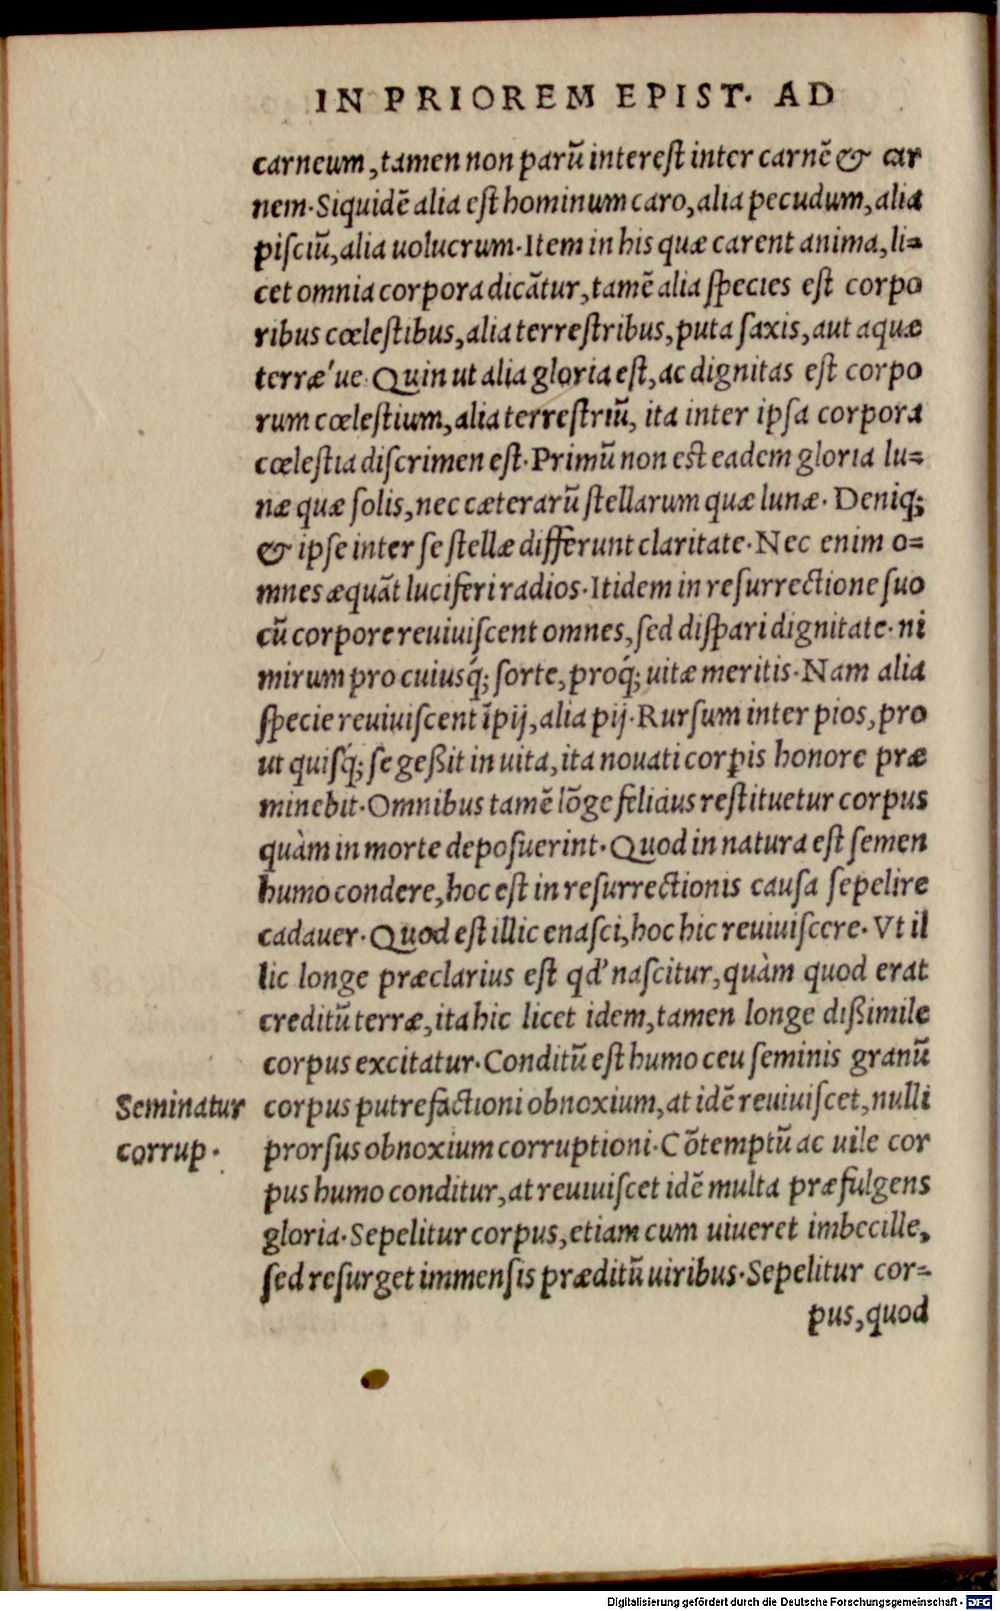 IN PRIOREM EPIST. AD
carneum, tamen non parũ interest inter carnẽ & car
nem. Siquidẽ alia est hominum caro, alia pecudum, alia
pisciũ, alia uolucrum. Item in his quæ carent anima, li=
cet omnia corpora dicãtur, tamẽ alia species est corpo
ribus cœlestibus, alia terrestribus, puta saxis, aut aquæ
terræ'ue. Quin ut alia gloria est, ac dignitas est corpo
rum cœlestium, alia terrestriũ, ita inter ipsa corpora
cœlestia discrimen est. Primũ non est eadem gloria lu=
næ quæ solis, nec cæterarũ stellarum quæ lunæ. Deniq;
& ipse inter se stellæ differunt claritate. Nec enim o=
mnes æquãt luciferi radios. Itidem in resurrectione suo
cũ corpore reuiuiscent omnes, sed dispari dignitate. ni
mirum pro cuiusq́; sorte, proq́; uitæ meritis. Nam alia
specie reuiuiscent ĩpij, alia pij. Rursum inter pios, pro
ut quisq́; se geßit in uita, ita nouati corpis honore præ
minebit. Omnibus tamẽ lõge felicius restituetur corpus
quàm in morte deposuerint. Quod in natura est semen
humo condere, hoc est in resurrectionis causa sepelire
cadauer. Quod est illic enasci, hoc hic reuiuiscere. Vt il
lic longe præclarius est qd' nascitur, quàm quod erat
creditũ terræ, ita hic licet idem, tamen longe dißimile
corpus excitatur. Conditũ est humo ceu seminis granũ
Seminatur corpus putrefactioni obnoxium, at idẽ reuiuiscet, nulli
corrup. prorsus obnoxium corruptioni. Cõtemptũ ac uile cor
pus humo conditur, at reuiuiscet idẽ multa præfulgens
gloria. Sepelitur corpus, etiam cum uiueret imbecille,
sed resurget immensis præditũ uiribus. Sepelitur cor=
pus, quod
Digitalisierung gefördert durch die Deutsche Forschungsgemeinschaft - DFG